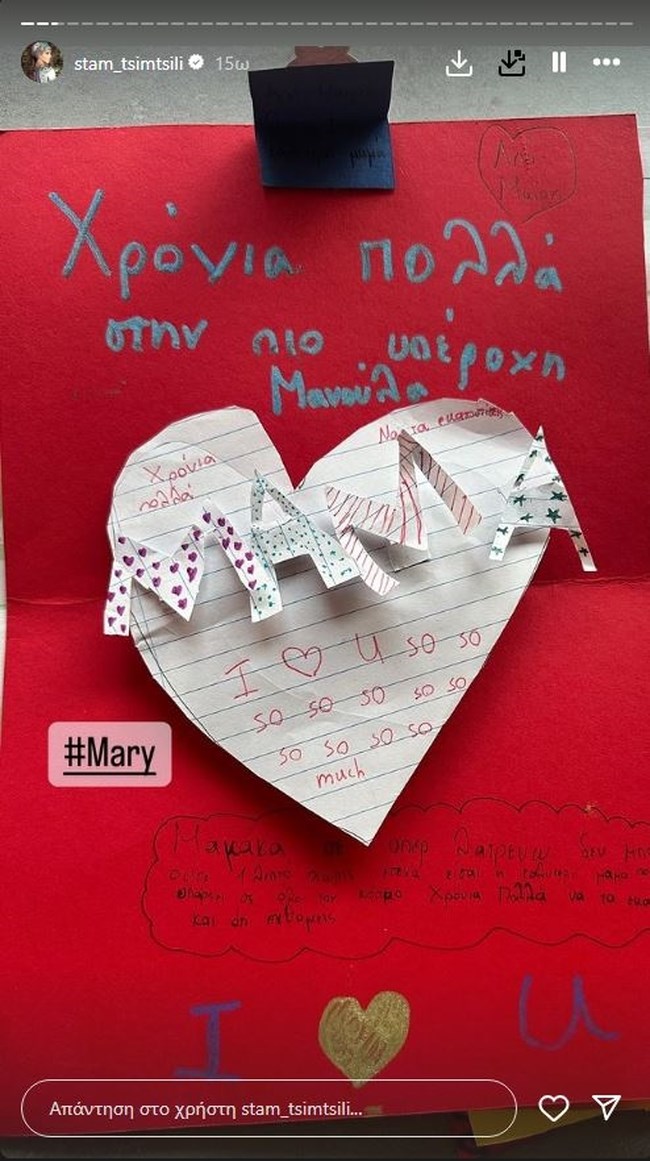 stam_tsimtsili 15ω
Από
Μαίρη
Χρόνια πολλά
στην πιο υπέροχη
Μανούλα
Χρόνια
πολλά
Να τα εκατοστίσεις
ΜΑΜΑ
I ♡ U so so
so so so so so
so so so so
much
#Mary
Μαμάκα σε υπερ λατρεύω δεν
είσαι η καλύτερη μαμά
υπάρχει σε όλο τον κόσμο Χρόνια Πολλά να τα
και ότι επιθυμείς
I U
Απάντηση στο χρήστη stam_tsimtsili...